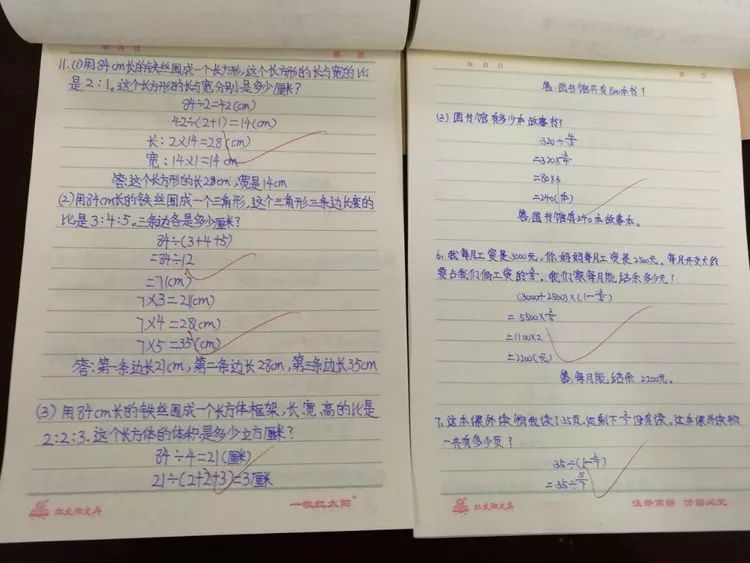 年 月 日
11.(1)用84cm长的铁丝围成一个长方形,这个长方形的长与宽的比
是2:1。这个长方形的长与宽分别是多少厘米?
84÷2=42(cm)
42÷(2+1)=14(cm)
长:2×14=28(cm)
宽:14×1=14cm
答:这个长方形的长28cm,宽是14cm
(2)用84cm长的铁丝围成一个三角形,这个三角形三条边长度的
比是3:4:5。三条边各是多少厘米?
84÷(3+4+5)
=84÷12
=7(cm)
7×3=21(cm)
7×4=28(cm)
7×5=35(cm)
答:第一条边长21cm,第二条边长28cm,第三条边长35cm
(3)用84cm长的铁丝围成一个长方体框架,长、宽、高的比是
2:2:3.这个长方体的体积是多少立方厘米?
84÷4=21(厘米)
21÷(2+2+3)=3厘米
红太阳文具
一枚红太阳
年 月 日
答:图书馆共有800本书?
(2)图书馆有多少本故事书?
320÷
=320×
=80×3
=240(本)
答:图书馆有240本故事本。
6.我每月工资是3000元,你妈妈每月工资是2500元。每月开支大约
要占我们俩工资的3/5。我们家每月能结余多少元?
(3000+2500)×(1-3/5)
=5500×2/5
=1100×2
=2200(元)
答:每月能结余2200元。
7.这本课外读物我读了35页,还剩下2/7没有读。这本课外读物
一共有多少页?
35÷(1-2/7)
=35÷5/7
红太阳文具
注册商标 仿冒必究